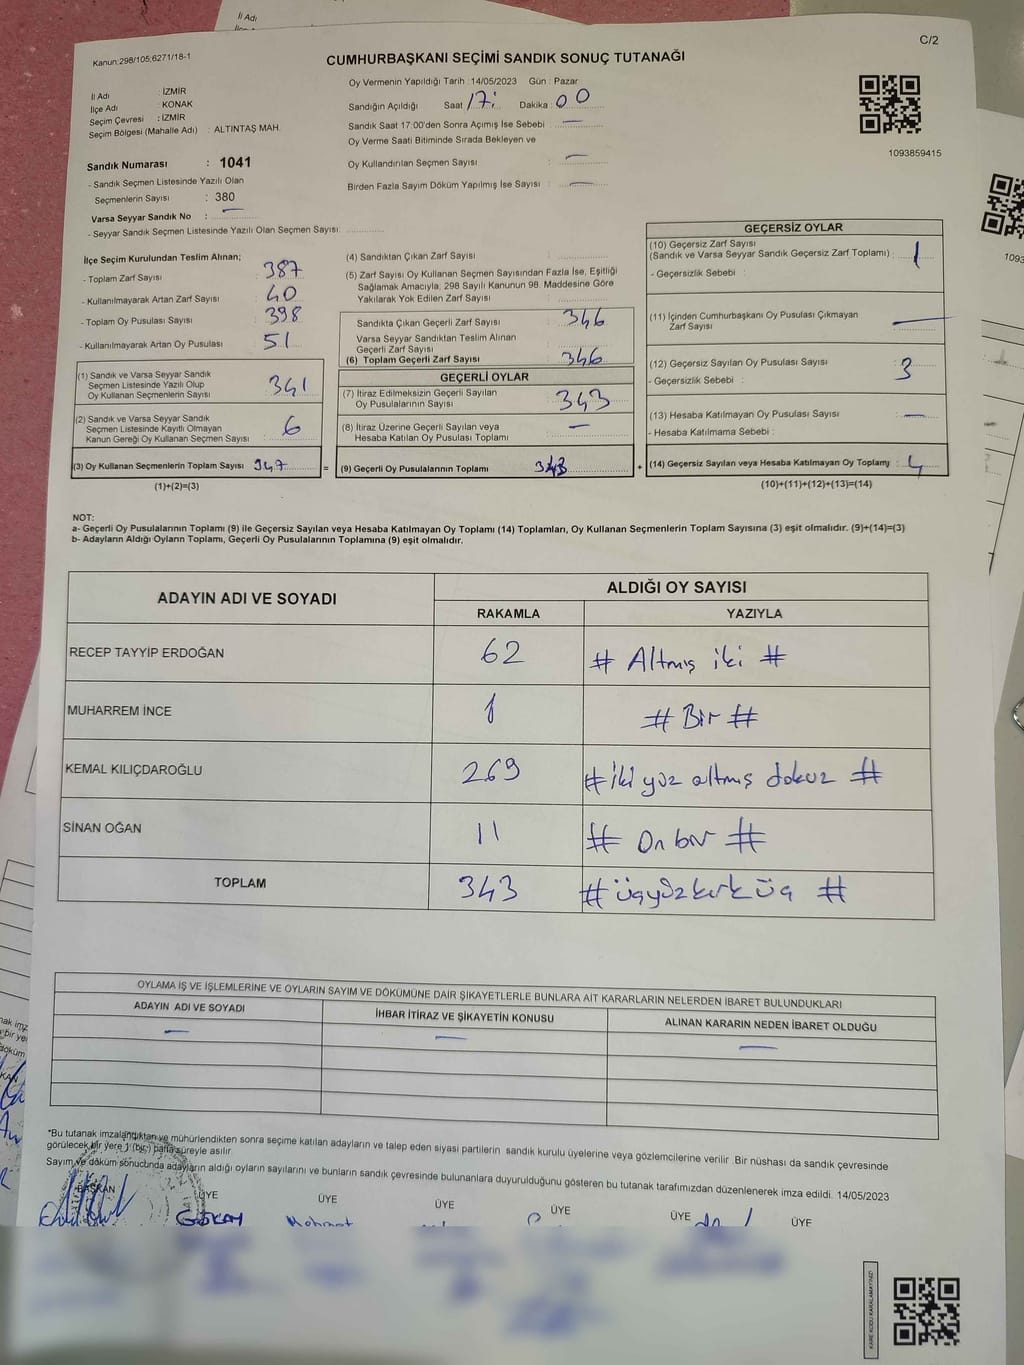 İl Adı
C/2
Kanun:298/105;6271/18-1
CUMHURBAŞKANI SEÇİMİ SANDIK SONUÇ TUTANAĞI
İl Adı : İZMİR
İlçe Adı : KONAK
Seçim Çevresi : İZMİR
Seçim Bölgesi (Mahalle Adı) : ALTINTAŞ MAH.
Sandık Numarası : 1041
- Sandık Seçmen Listesinde Yazılı Olan
Seçmenlerin Sayısı : 380
Varsa Seyyar Sandık No : —
- Seyyar Sandık Seçmen Listesinde Yazılı Olan Seçmen Sayısı:
Oy Vermenin Yapıldığı Tarih : 14/05/2023 Gün : Pazar
Sandığın Açıldığı Saat 17: Dakika : 00
Sandık Saat 17:00'den Sonra Açımış İse Sebebi : —
Oy Verme Saati Bitiminde Sırada Bekleyen ve
Oy Kullandırılan Seçmen Sayısı : —
Birden Fazla Sayım Döküm Yapılmış İse Sayısı : —
1093859415
1093
İlçe Seçim Kurulundan Teslim Alınan;
- Toplam Zarf Sayısı : 387
- Kullanılmayarak Artan Zarf Sayısı : 40
- Toplam Oy Pusulası Sayısı : 398
- Kullanılmayarak Artan Oy Pusulası : 51
(1) Sandık ve Varsa Seyyar Sandık
Seçmen Listesinde Yazılı Olup
Oy Kullanan Seçmenlerin Sayısı : 341
(2) Sandık ve Varsa Seyyar Sandık
Seçmen Listesinde Kayıtlı Olmayan
Kanun Gereği Oy Kullanan Seçmen Sayısı : 6
(3) Oy Kullanan Seçmenlerin Toplam Sayısı : 347 =
(1)+(2)=(3)
(4) Sandıktan Çıkan Zarf Sayısı :
(5) Zarf Sayısı Oy Kullanan Seçmen Sayısından Fazla İse, Eşitliği
Sağlamak Amacıyla; 298 Sayılı Kanunun 98. Maddesine Göre
Yakılarak Yok Edilen Zarf Sayısı :
Sandıkta Çıkan Geçerli Zarf Sayısı : 346
Varsa Seyyar Sandıktan Teslim Alınan
Geçerli Zarf Sayısı :
(6) Toplam Geçerli Zarf Sayısı : 346
GEÇERLİ OYLAR
(7) İtiraz Edilmeksizin Geçerli Sayılan
Oy Pusulalarının Sayısı : 343
(8) İtiraz Üzerine Geçerli Sayılan veya
Hesaba Katılan Oy Pusulası Toplamı : —
(9) Geçerli Oy Pusulalarının Toplamı : 343 +
GEÇERSİZ OYLAR
(10) Geçersiz Zarf Sayısı
(Sandık ve Varsa Seyyar Sandık Geçersiz Zarf Toplamı) : 1
- Geçersizlik Sebebi :
(11) İçinden Cumhurbaşkanı Oy Pusulası Çıkmayan
Zarf Sayısı : —
(12) Geçersiz Sayılan Oy Pusulası Sayısı : 3
- Geçersizlik Sebebi :
(13) Hesaba Katılmayan Oy Pusulası Sayısı : —
- Hesaba Katılmama Sebebi :
(14) Geçersiz Sayılan veya Hesaba Katılmayan Oy Toplamı : 4
(10)+(11)+(12)+(13)=(14)
NOT:
a- Geçerli Oy Pusulalarının Toplamı (9) ile Geçersiz Sayılan veya Hesaba Katılmayan Oy Toplamı (14) Toplamları, Oy Kullanan Seçmenlerin Toplam Sayısına (3) eşit olmalıdır. (9)+(14)=(3)
b- Adayların Aldığı Oyların Toplamı, Geçerli Oy Pusulalarının Toplamına (9) eşit olmalıdır.
ADAYIN ADI VE SOYADI
ALDIĞI OY SAYISI
RAKAMLA YAZIYLA
RECEP TAYYİP ERDOĞAN 62 # Altmış iki #
MUHARREM İNCE 1 # Bir #
KEMAL KILIÇDAROĞLU 269 # iki yüz altmış dokuz #
SİNAN OĞAN 11 # On bir #
TOPLAM 343 # üçyüzkırküç #
OYLAMA İŞ VE İŞLEMLERİNE VE OYLARIN SAYIM VE DÖKÜMÜNE DAİR ŞİKAYETLERLE BUNLARA AİT KARARLARIN NELERDEN İBARET BULUNDUKLARI
ADAYIN ADI VE SOYADI İHBAR İTİRAZ VE ŞİKAYETİN KONUSU ALINAN KARARIN NEDEN İBARET OLDUĞU
— — —
*Bu tutanak imzalandıktan ve mühürlendikten sonra seçime katılan adayların ve talep eden siyasi partilerin sandık kurulu üyelerine veya gözlemcilerine verilir. Bir nüshası da sandık çevresinde
görülecek bir yere 1 (bir) hafta süreyle asılır.
Sayım ve döküm sonucunda adayların aldığı oyların sayılarını ve bunların sandık çevresinde bulunanlara duyurulduğunu gösteren bu tutanak tarafımızdan düzenlenerek imza edildi. 14/05/2023
BAŞKAN ÜYE ÜYE ÜYE ÜYE ÜYE ÜYE
GÖKAY Mehmet
KARE KODU KARALAMAYINIZ!